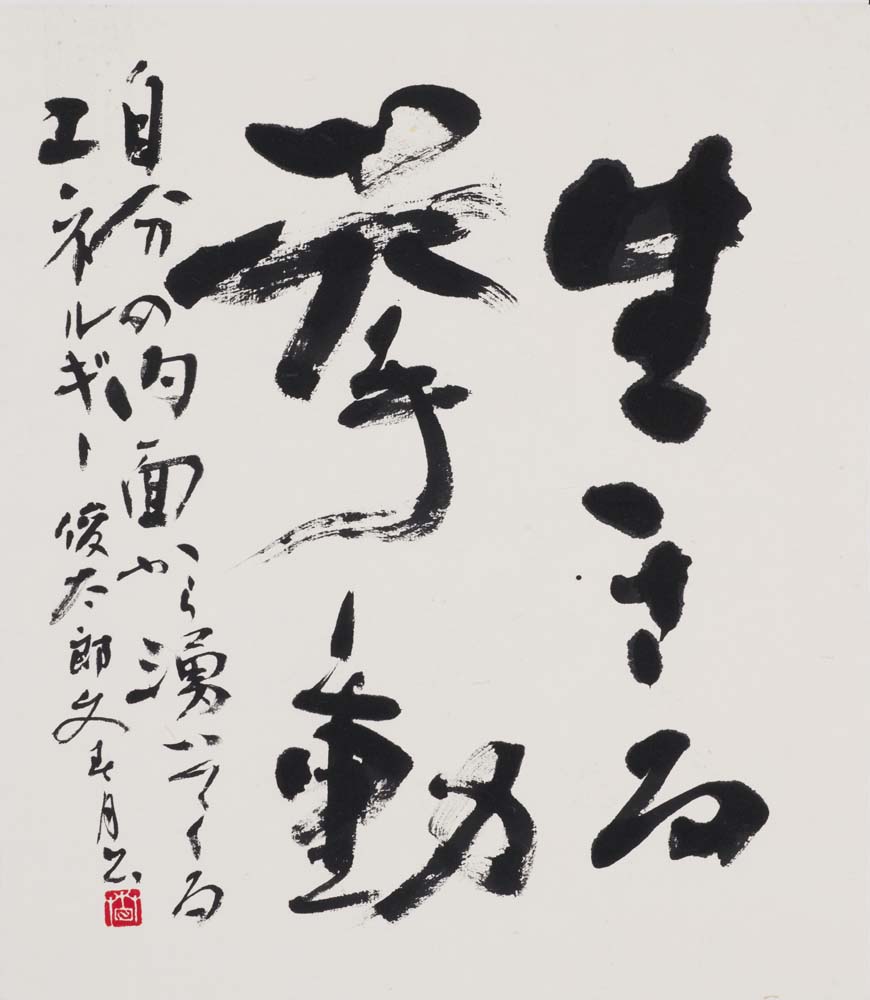 生きる
挙動
自分の内面から湧いてくる
エネルギー 俊太郎文